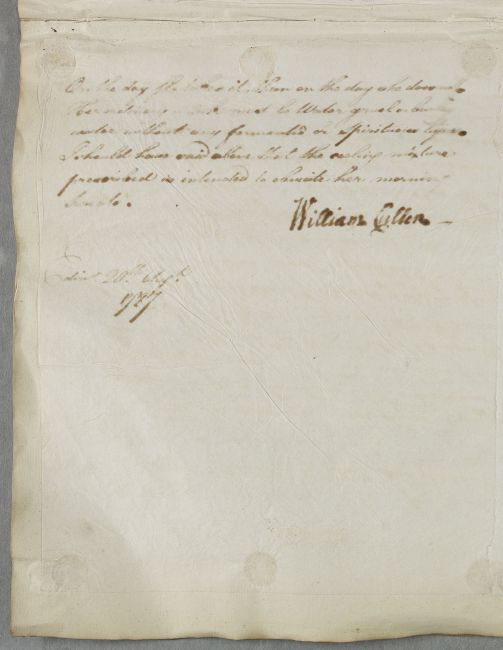 On the day she takes it than on the day she does not
Her ordinary drink must be Water gruel or barley
water without any fermented or Spirituous liquor
I should have said above that the cooling mixture
prescribed is intended to obviate her morning
Sweats.
William Cullen
Edinr. 20th Augt.
1787